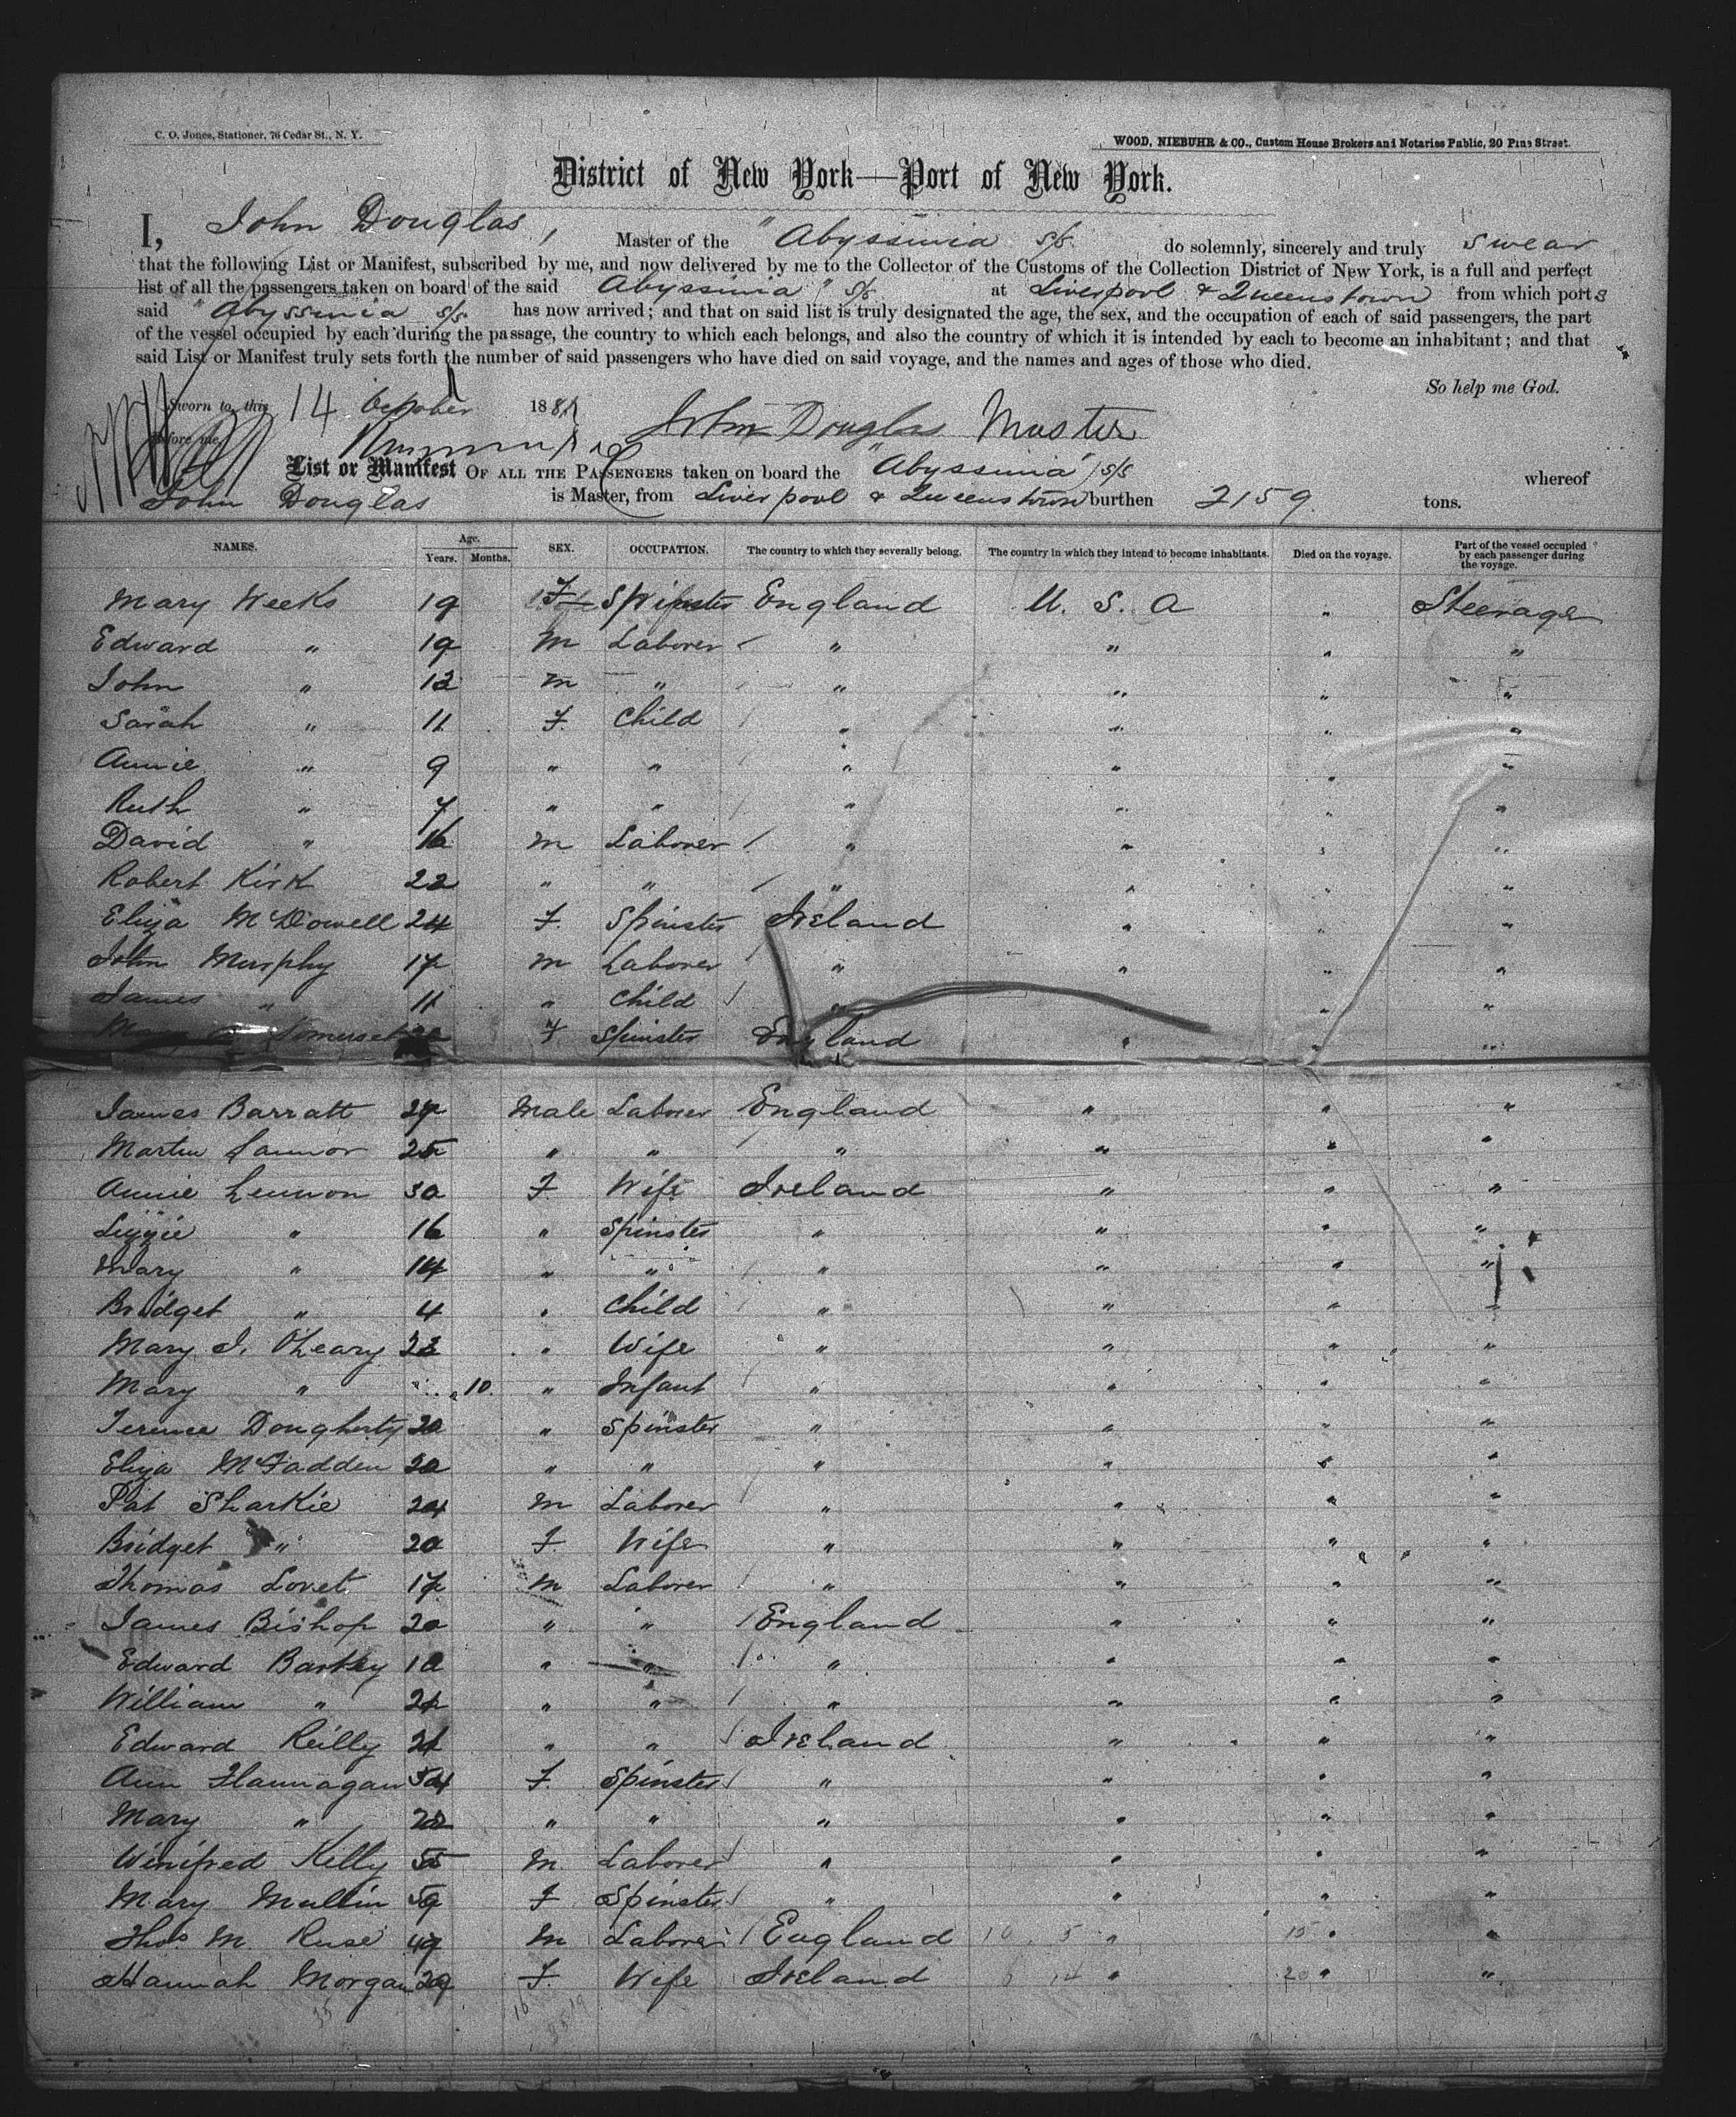 C. O. Jones, Stationer, 76 Cedar St., N. Y.
WOOD, NIEBUHR & CO., Custom House Brokers and Notaries Public, 20 Pine Street.
District of New York—Port of New York.
I, John Douglas, Master of the "Abyssinia s/s do solemnly, sincerely and truly swear
that the following List or Manifest, subscribed by me, and now delivered by me to the Collector of the Customs of the Collection District of New York, is a full and perfect
list of all the passengers taken on board of the said Abyssinia" s/s at Liverpool & Queenstown from which ports
said "Abyssinia s/s has now arrived; and that on said list is truly designated the age, the sex, and the occupation of each of said passengers, the part
of the vessel occupied by each during the passage, the country to which each belongs, and also the country of which it is intended by each to become an inhabitant; and that
said List or Manifest truly sets forth the number of said passengers who have died on said voyage, and the names and ages of those who died.
So help me God.
Sworn to, this 14 October 188
John Douglas Master
Before me,
List or Manifest OF ALL THE PASSENGERS taken on board the "Abyssinia" s/s whereof
John Douglas is Master, from Liverpool & Queenstown burthen 2159 tons.
NAMES. Age. Years. Months. SEX. OCCUPATION. The country to which they severally belong. The country in which they intend to become inhabitants. Died on the voyage. Part of the vessel occupied by each passenger during the voyage.
Mary Weeks 19 F Spinster England U. S. A " Steerage
Edward " 19 M Laborer " " " "
John " 12 M " " " " "
Sarah " 11 F. Child " " " "
Annie " 9 " " " " " "
Ruth " 7 " " " " " "
David " 16 M Laborer " " " "
Robert Kirk 22 " " " " " "
Eliza McDowell 24 F. Spinster Ireland " " "
John Murphy 17 M Laborer " " " "
James " 11 " Child " " " "
Somerset F Spinster England " " "
James Barratt 27 Male Laborer England " " "
Martin 25 " " " " " "
Annie Lennon 30 F. Wife Ireland " " "
Lizzie " 16 " Spinster " " " "
Mary " 14 " " " " " "
Bridget " 4 " Child " " " "
Mary J. O'Leary 23 " Wife " " " "
Mary " 10. " Infant " " " "
Terence Dougherty 20 " Spinster " " " "
Eliza McFadden 20 " " " " " "
Pat Sharkie 24 M Laborer " " " "
Bridget " 20 F. Wife " " " "
Thomas Lovet 17 M Laborer " " " "
James Bishop 20 " " England " " "
Edward Bartley " " " " " "
William " " " " " " "
Edward Reilly 21 " " Ireland " " "
Ann Flannagan 54 F. Spinster " " " "
Mary " 28 " " " " " "
Winifred Kelly 55 M. Laborer " " " "
Mary Mullin 59 F Spinster " " " "
Thos. M. Ruse 49 M Laborer England " " "
Hannah Morgan 29 F. Wife Ireland " " "